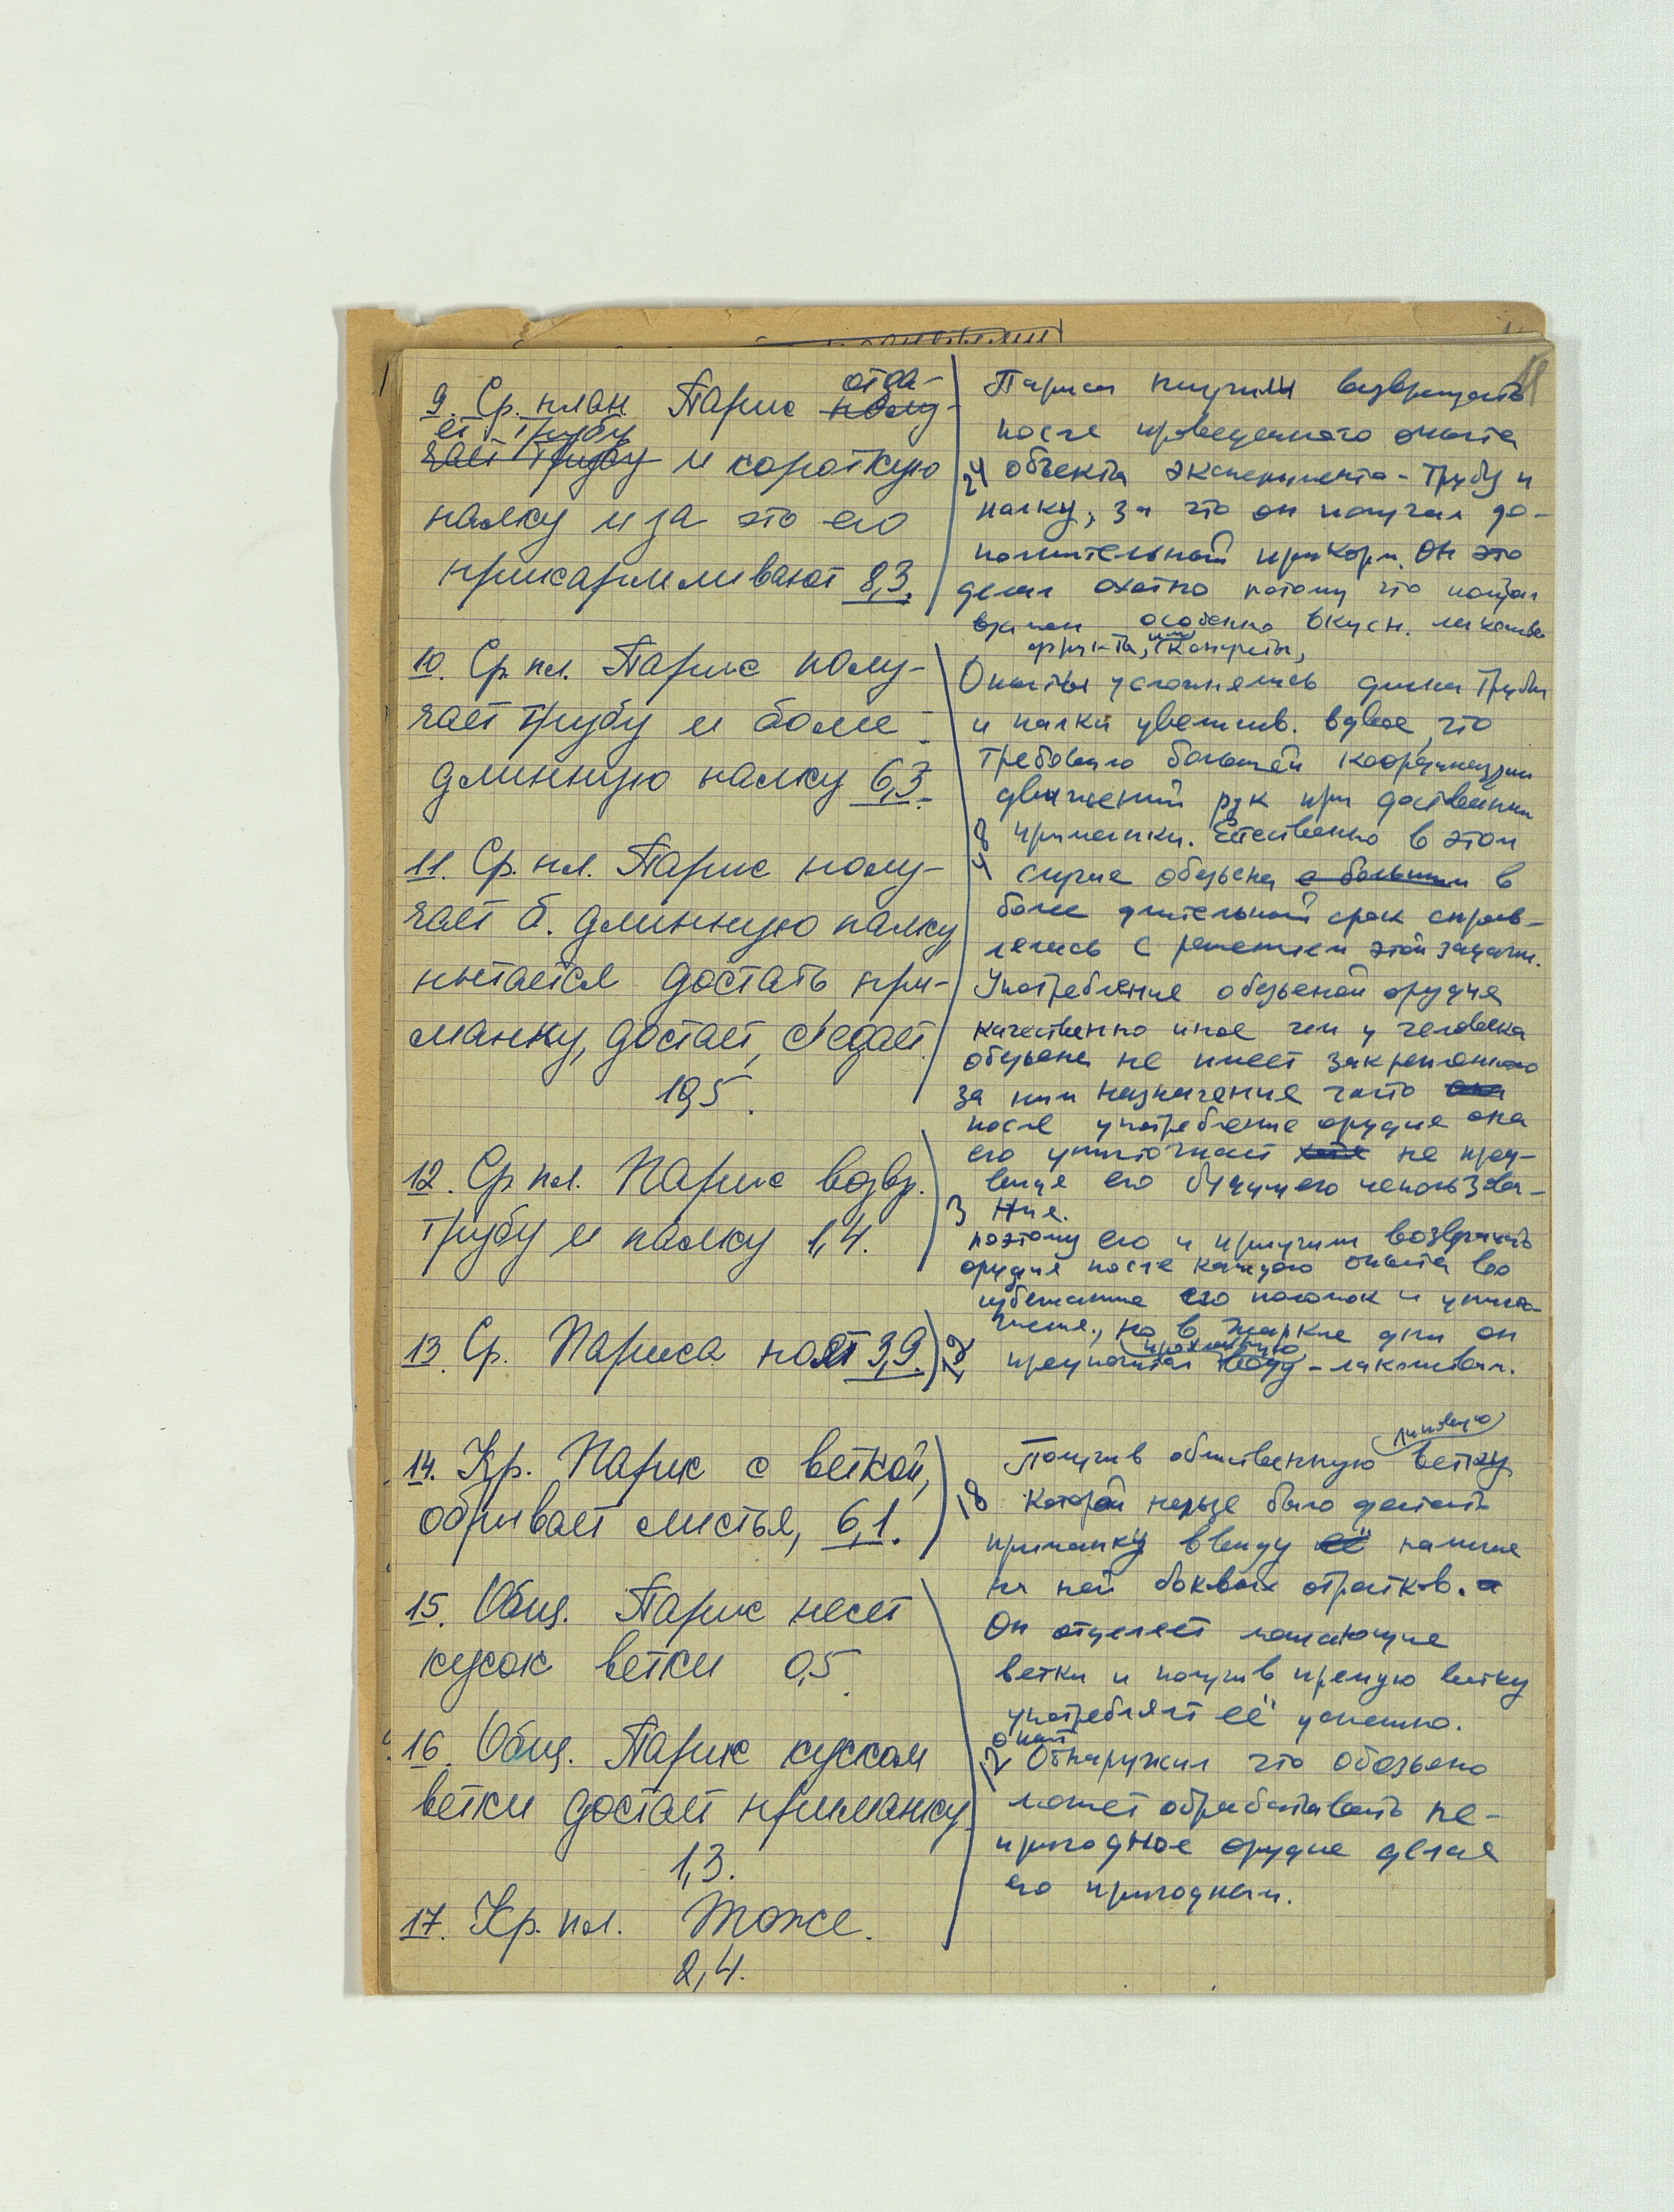 9. Ср. план Парис полу-
отда-
ет трубу
чает трубу и короткую
палку и за это его
прикармливают 8,3.
10. Ср. пл. Парис полу-
чает трубу и более
длинную палку 6,3.
11. Ср. пл. Парис полу-
чает б. длинную палку
пытается достать при-
манку, достает, съедает.
10,5.
12. Ср пл. Парис возвр.
трубу и палку 1,4.
13. Ср. Париса поят 3,9.
14. Кр. Парис с веткой,
обрывает листья, 6,1.
15. Общ. Парис несет
кусок ветки 0,5.
16. Общ. Парис куском
ветки достает приманку
1,3.
17. Кр. пл. Тоже.
2,4.
Париса приучили возвращать
после проведенного опыта
24 объекта эксперимента - трубу и
палку, за что он получал до-
полнительный прикорм. Он это
делал охотно потому что
особенно вкусн. лакомства
фрукты, или конфеты,
Опыты усложнялись длина трубы
и палки увелич. вдвое, что
требовало большей координации
движений рук при доставании
приманки. Естественно в этом
случае обезьяна с большим в
более длительный срок справ-
лялась с решением этой задачи.
Употребление обезьяной орудия
качественно иное чем у человека
обезьяна не имеет закрепленного
за ним назначения часто она
после употребления орудия она
его уничтожает не пред-
видя его будущего использова-
3 ния.
поэтому его и приучили возвращать
орудия после каждого опыта во
избежание его поломок и уничто-
жения., но в жаркие дни он
12 предпочитал прохладную воду - лакомствам.
Получив облиственную липовую ветку
18 которой нельзя было достать
приманку ввиду её наличия
на ней боковых отростков. а
Он отделяет мешающие
ветки и получив прямую ветку
употребляет её успешно.
опыт
12 Обнаружил что обезьяна
может обрабатывать не-
пригодное орудие делая
его пригодным.